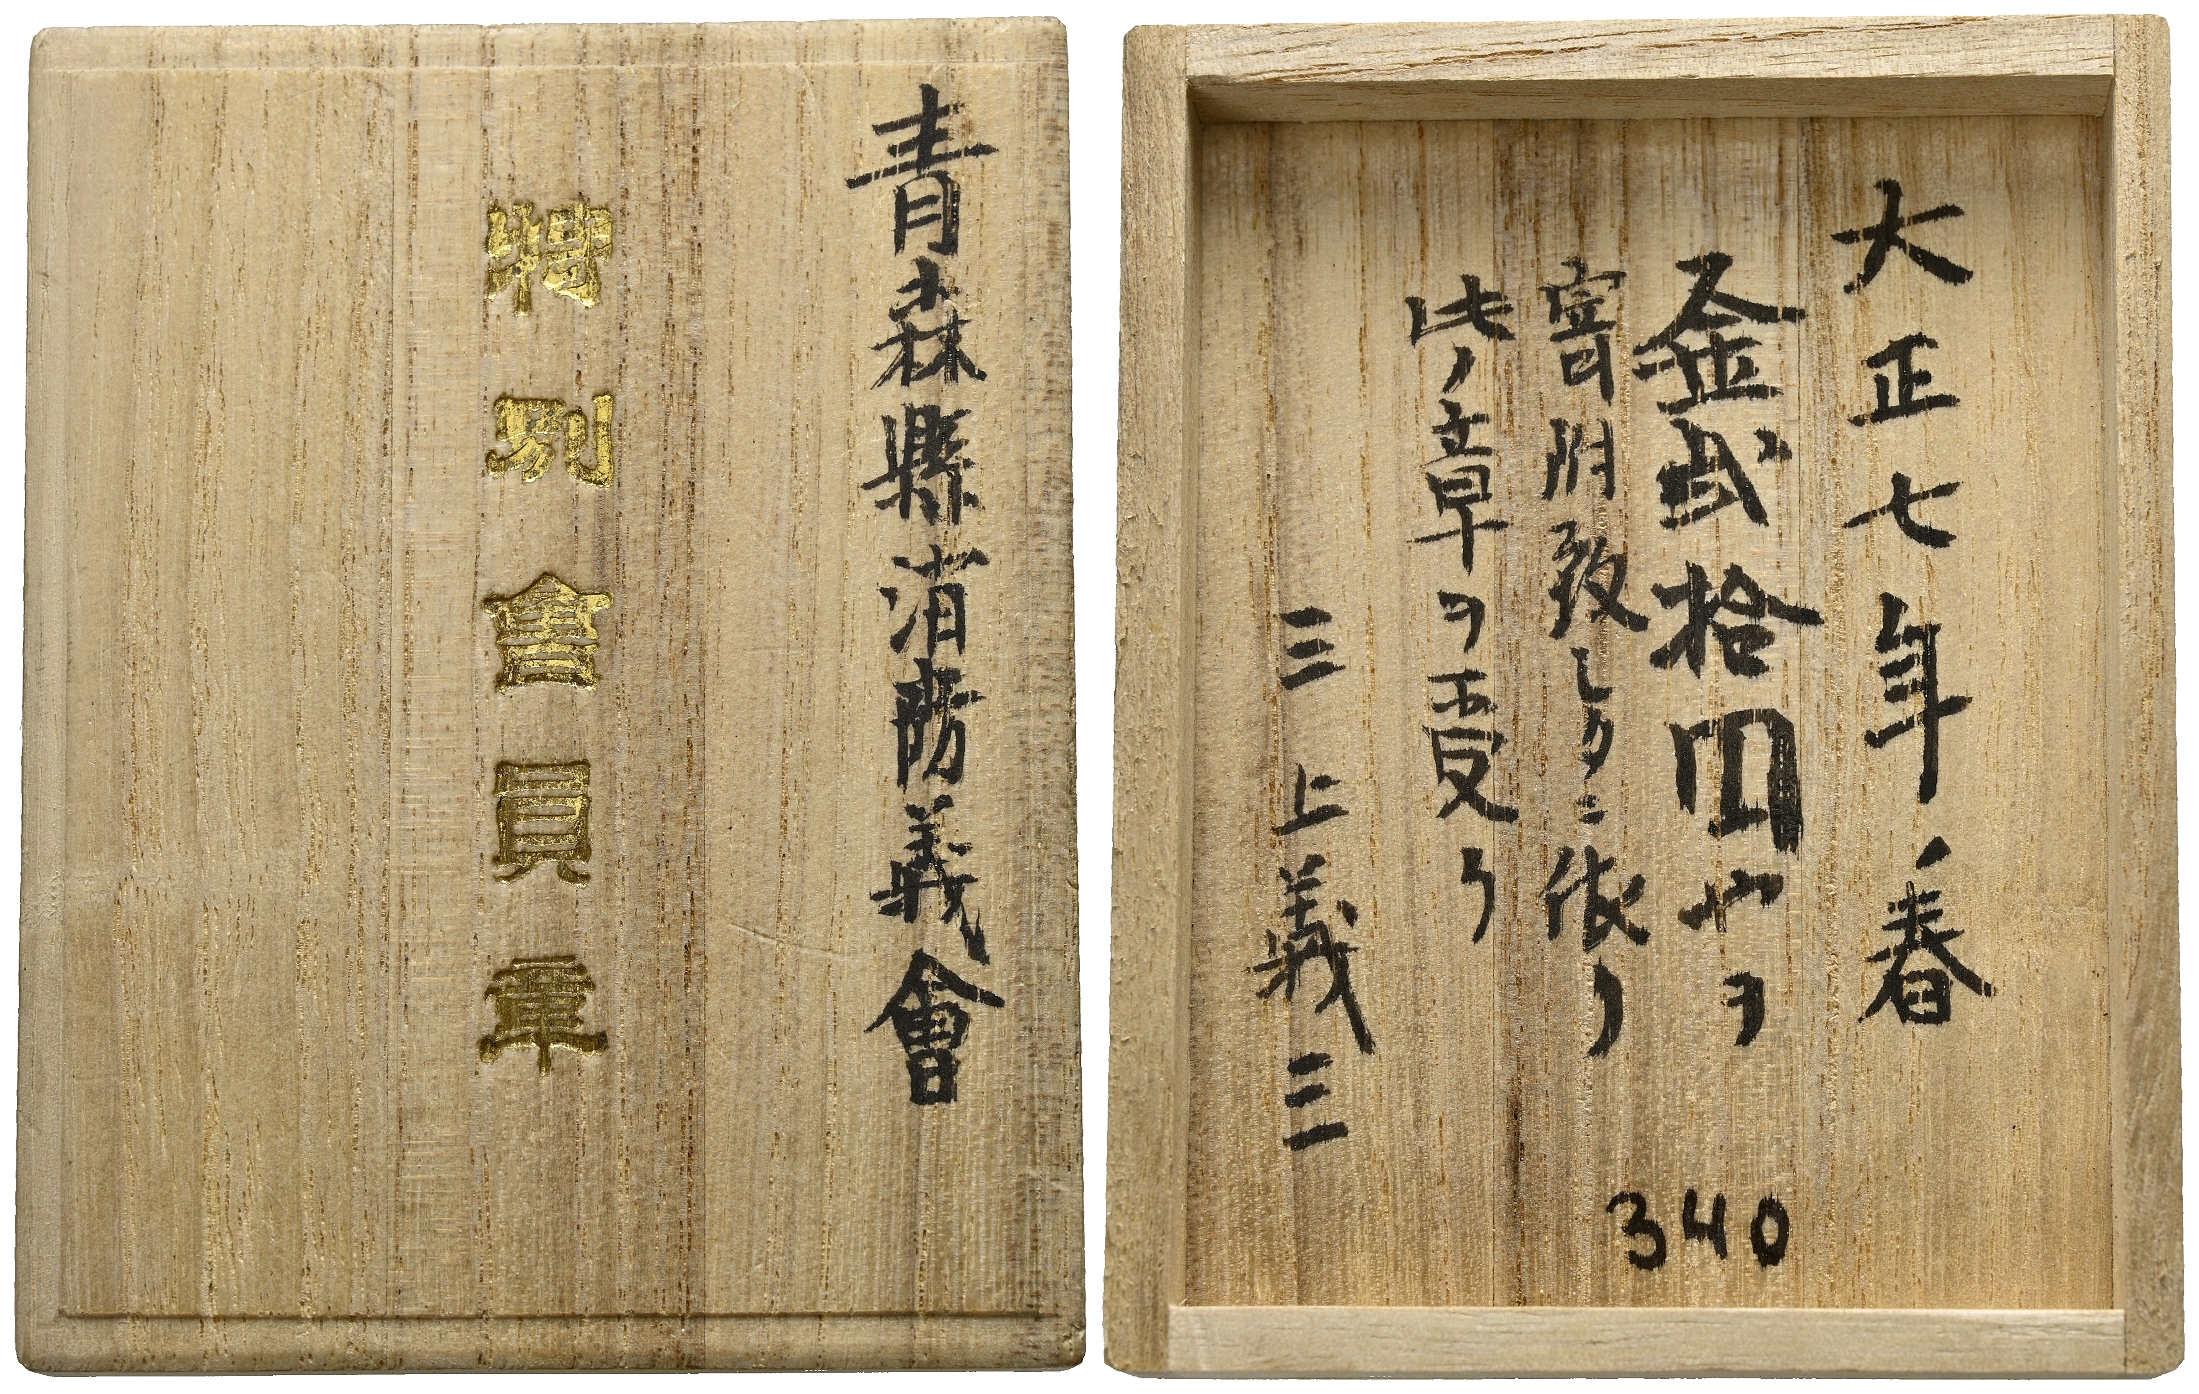 青森縣消防義會
特別會員章
大正七年ノ春
金貳拾四ヤヲ
寄附致シタニ依リ
此ノ章ヲ受ク
三上義三
340